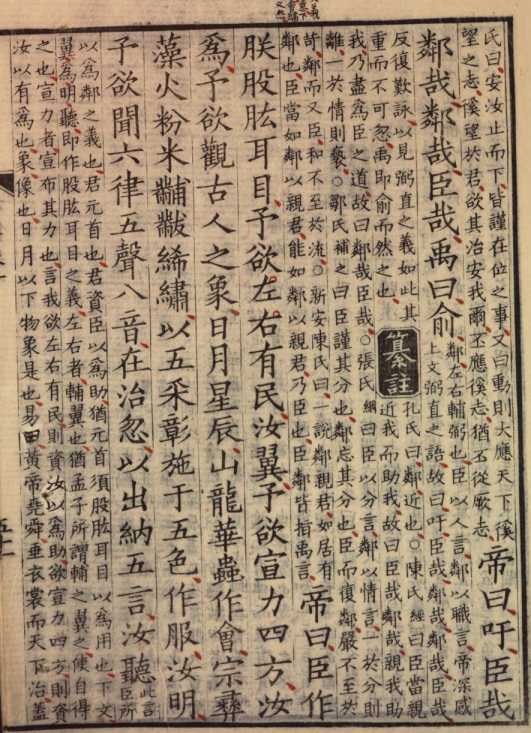 氏曰安汝止而下皆謹在位之事又曰動則大應天下徯
望之志徯望於君欲其治安我爾丕應徯志猶丕從厥志
帝曰吁臣哉
鄰哉鄰哉臣哉禹曰俞
鄰左右輔弼也臣以人言鄰以職言帝深感
上文弼直之語故曰吁臣哉鄰哉鄰哉臣哉
反復歎詠以見弼直之義如此其
重而不可忽禹即俞而然之也
纂註
孔氏曰鄰近也○陳氏經曰臣當親
近我而助我故曰臣哉鄰哉鄰親我助
我乃盡爲臣之道故曰鄰哉臣哉○張氏綱曰臣以分言鄰以情言一於分則
離一於情則褻○鄒氏補之曰臣謹其分也鄰忘其分也臣而復鄰嚴不至於
苛鄰而又臣和不至於流○新安陳氏曰一說鄰親君如居有
鄰也臣當如鄰以親君能如鄰以親君乃臣也臣鄰皆指禹言
帝曰臣作
朕股肱耳目予欲左右有民汝翼予欲宣力四方汝
爲予欲觀古人之象日月星辰山龍華蟲作會宗彝
藻火粉米黼黻絺繡以五采彰施于五色作服汝明
予欲聞六律五聲八音在治忽以出納五言汝聽
此言
臣所
以爲鄰之義也君元首也君資臣以爲助猶元首須股肱耳目以爲用也下文
翼爲明聽即作股肱耳目之義左右者輔翼也猶孟子所謂輔之翼之使自得
之也宣力者宣布其力也言我欲左右有民則資汝以爲助欲宣力四方則資
汝以有爲也象像也日月以下物象是也易曰黃帝堯舜垂衣裳而天下治蓋